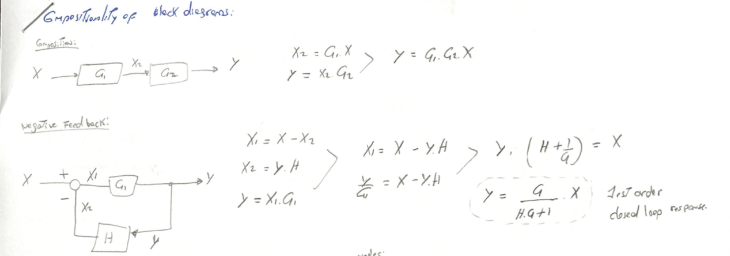 Compositionality of block diagrams:
Composition:
X G₁ X₂ G₂ Y
X₂ = G₁ X
Y = X₂ G₂
Y = G₁ G₂ X
Negative Feedback:
X + X₁ G₁ Y
-
X₂
H Y
X₁ = X - X₂
X₂ = Y.H
Y = X₁.G₁
X₁ = X - Y.H
Y/G₁ = X - Y.H
Y. (H + 1/G) = X
Y = G/(H.G+1) . X
first order
closed loop response.